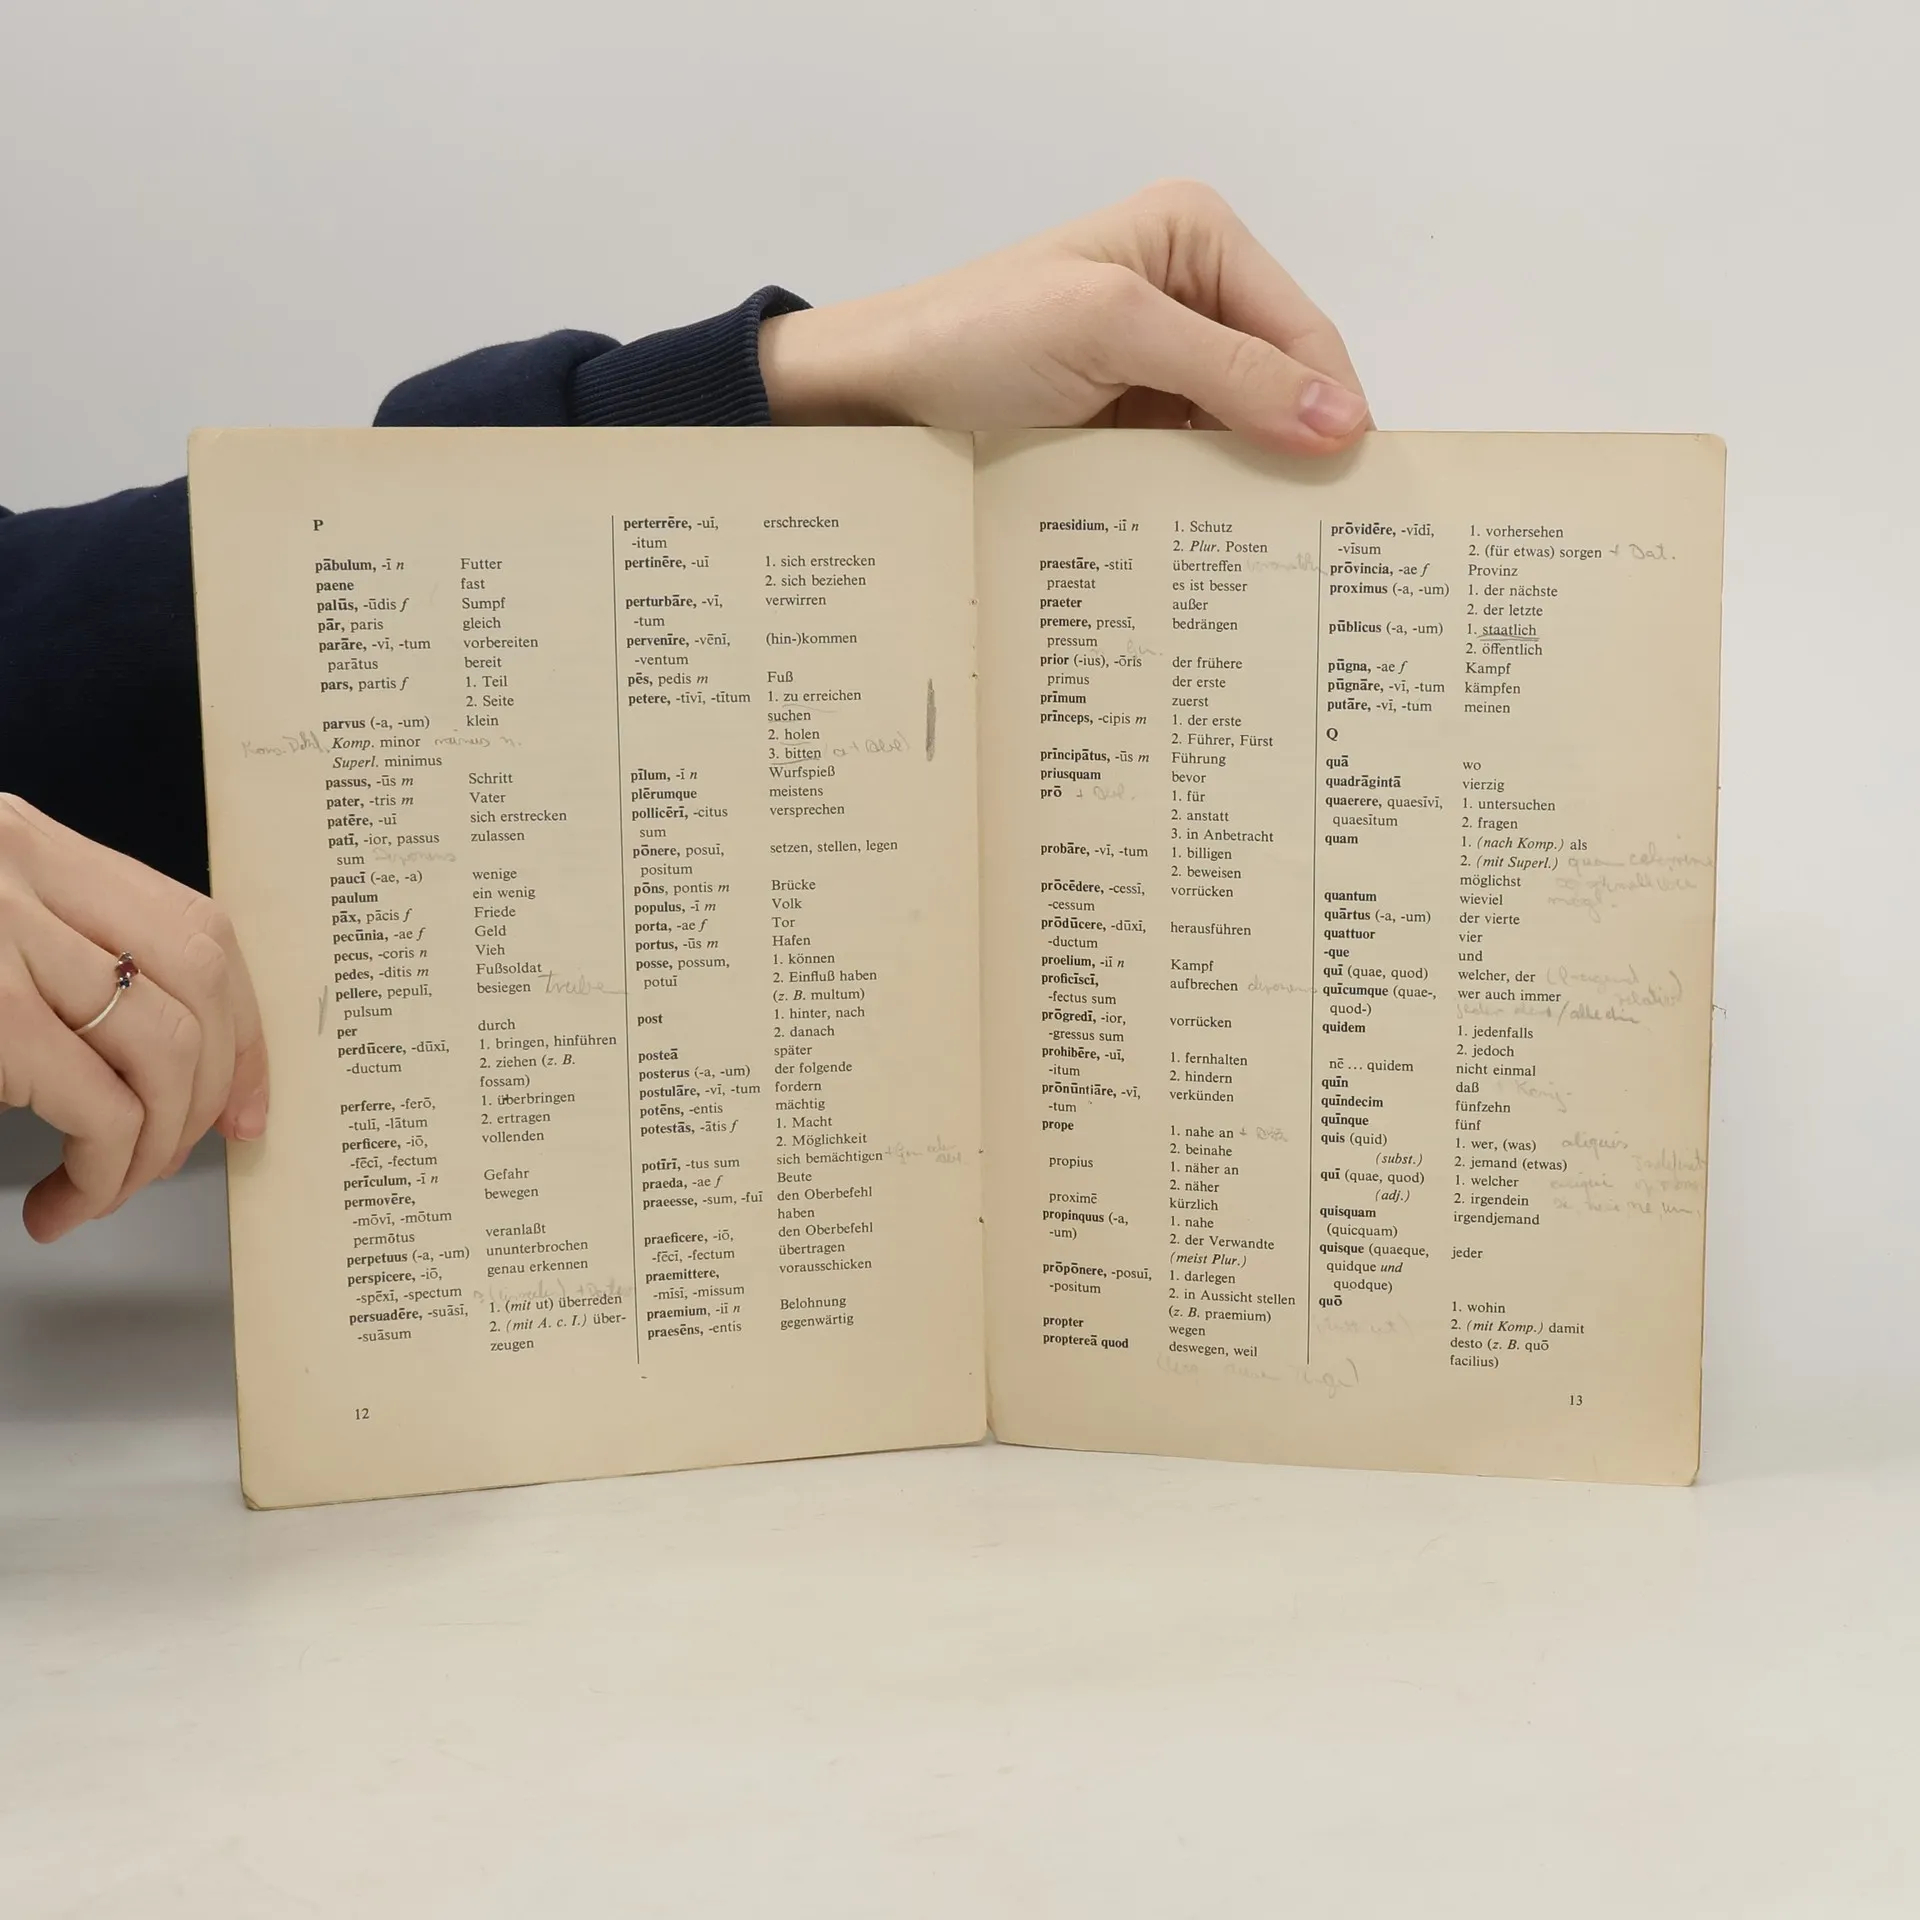 P
pābulum, -ī n Futter
paene fast
palūs, -ūdis f Sumpf
pār, paris gleich
parāre, -vī, -tum vorbereiten
parātus bereit
pars, partis f 1. Teil
2. Seite
parvus (-a, -um) klein
Komp. minor
Superl. minimus
passus, -ūs m Schritt
pater, -tris m Vater
patēre, -uī sich erstrecken
patī, -ior, passus zulassen
sum Deponens
paucī (-ae, -a) wenige
paulum ein wenig
pāx, pācis f Friede
pecūnia, -ae f Geld
pecus, -coris n Vieh
pedes, -ditis m Fußsoldat
pellere, pepulī, besiegen treiben
pulsum
per durch
perdūcere, -dūxī, 1. bringen, hinführen
-ductum 2. ziehen (z. B.
fossam)
perferre, -ferō, 1. überbringen
-tulī, -lātum 2. ertragen
perficere, -iō, vollenden
-fēcī, -fectum
perīculum, -ī n Gefahr
permovēre, bewegen
-mōvī, -mōtum
permōtus veranlaßt
perpetuus (-a, -um) ununterbrochen
perspicere, -iō, genau erkennen
-spēxī, -spectum
persuadēre, -suāsī, 1. (mit ut) überreden
-suāsum 2. (mit A. c. I.) über-
zeugen
perterrēre, -uī, erschrecken
-itum
pertinēre, -uī 1. sich erstrecken
2. sich beziehen
perturbāre, -vī, verwirren
-tum
pervenīre, -vēnī, (hin-)kommen
-ventum
pēs, pedis m Fuß
petere, -tīvī, -tītum 1. zu erreichen
suchen
2. holen
3. bitten
pīlum, -ī n Wurfspieß
plērumque meistens
pollicērī, -citus versprechen
sum
pōnere, posuī, setzen, stellen, legen
positum
pōns, pontis m Brücke
populus, -ī m Volk
porta, -ae f Tor
portus, -ūs m Hafen
posse, possum, 1. können
potuī 2. Einfluß haben
(z. B. multum)
post 1. hinter, nach
2. danach
posteā später
posterus (-a, -um) der folgende
postulāre, -vī, -tum fordern
potēns, -entis mächtig
potestās, -ātis f 1. Macht
2. Möglichkeit
potīrī, -tus sum sich bemächtigen
praeda, -ae f Beute
praeesse, -sum, -fuī den Oberbefehl
haben
praeficere, -iō, den Oberbefehl
-fēcī, -fectum übertragen
praemittere, vorausschicken
-mīsī, -missum
praemium, -iī n Belohnung
praesēns, -entis gegenwärtig
12
praesidium, -iī n 1. Schutz
2. Plur. Posten
praestāre, -stitī übertreffen
praestat es ist besser
praeter außer
premere, pressī, bedrängen
pressum
prior (-ius), -ōris der frühere
prīmus der erste
prīmum zuerst
prīnceps, -cipis m 1. der erste
2. Führer, Fürst
prīncipātus, -ūs m Führung
priusquam bevor
prō + Abl. 1. für
2. anstatt
3. in Anbetracht
probāre, -vī, -tum 1. billigen
2. beweisen
prōcēdere, -cessī, vorrücken
-cessum
prōdūcere, -dūxī, herausführen
-ductum
proelium, -iī n Kampf
proficīscī, aufbrechen deponens
-fectus sum
prōgredī, -ior, vorrücken
-gressus sum
prohibēre, -uī, 1. fernhalten
-itum 2. hindern
prōnūntiāre, -vī, verkünden
-tum
prope 1. nahe an
2. beinahe
propius 1. näher an
2. näher
proximē kürzlich
propinquus (-a, 1. nahe
-um) 2. der Verwandte
(meist Plur.)
prōpōnere, -posuī, 1. darlegen
-positum 2. in Aussicht stellen
(z. B. praemium)
propter wegen
proptereā quod deswegen, weil
prōvidēre, -vīdī, 1. vorhersehen
-vīsum 2. (für etwas) sorgen + Dat.
prōvincia, -ae f Provinz
proximus (-a, -um) 1. der nächste
2. der letzte
pūblicus (-a, -um) 1. staatlich
2. öffentlich
pūgna, -ae f Kampf
pūgnāre, -vī, -tum kämpfen
putāre, -vī, -tum meinen
Q
quā wo
quadrāgintā vierzig
quaerere, quaesīvī, 1. untersuchen
quaesītum 2. fragen
quam 1. (nach Komp.) als
2. (mit Superl.)
möglichst
quantum wieviel
quārtus (-a, -um) der vierte
quattuor vier
-que und
quī (quae, quod) welcher, der
quīcumque (quae-, wer auch immer
quod-)
quidem 1. jedenfalls
2. jedoch
nē ... quidem nicht einmal
quīn daß
quīndecim fünfzehn
quīnque fünf
quis (quid) 1. wer, (was) aliquis
(subst.) 2. jemand (etwas)
quī (quae, quod) 1. welcher
(adj.) 2. irgendein
quisquam irgendjemand
(quicquam)
quisque (quaeque, jeder
quidque und
quodque)
quō 1. wohin
2. (mit Komp.) damit
desto (z. B. quō
facilius)
13